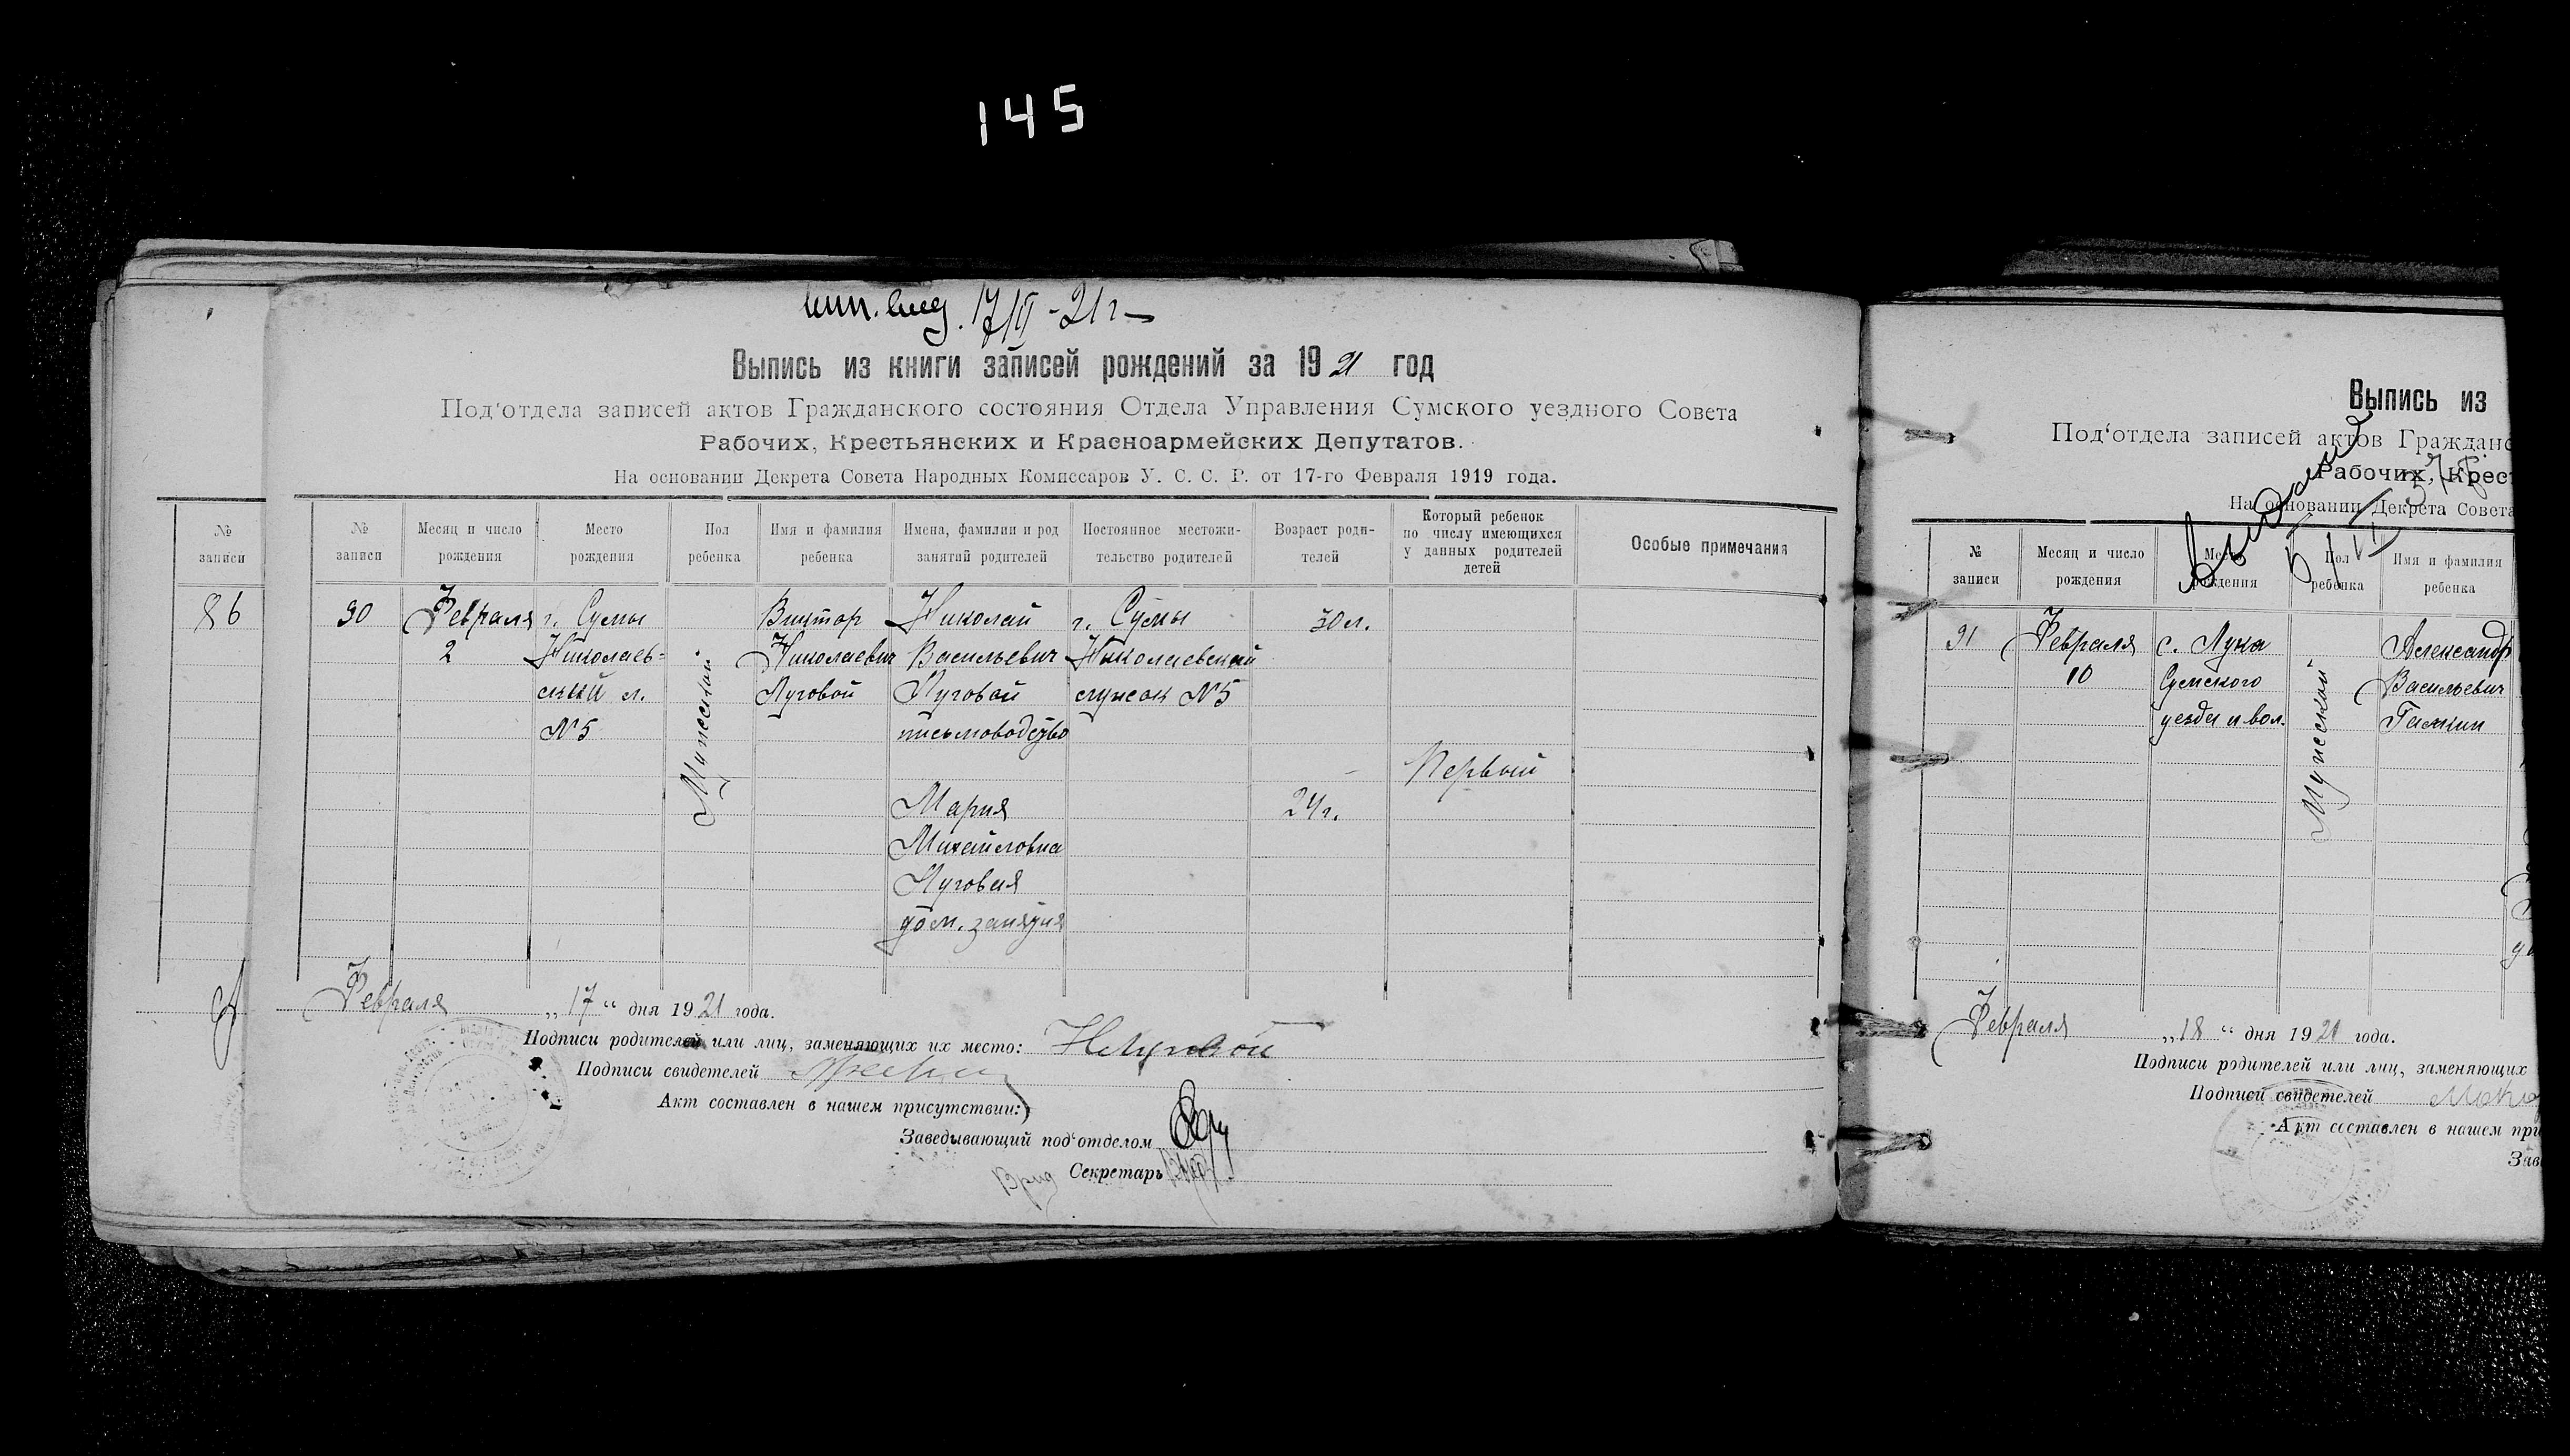 145
17/II-21 г
Выпись из книги записей рождений за 1921 год
Под‘отдела записей актов Гражданского состояния Отдела Управления Сумского уездного Совета
Рабочих, Крестьянских и Красноармейских Депутатов.
На основании Декрета Совета Народных Комиссаров У. С. С. Р. от 17-го Февраля 1919 года.
№ записи
86
№ записи
Месяц и число рождения
Место рождения
Пол ребенка
Имя и фамилия ребенка
Имена, фамилии и род занятий родителей
Постоянное местожи-
тельство родителей
Возраст роди-
телей
Который ребенок
по числу имеющихся
у данных родителей
детей
Особые примечания
90
Февраля
2
г. Сумы
Николаев-
ский л.
№5
Мужеский
Виктор
Николаевич
Луговой
Николай
Васильевич
Луговой
письмоводство
Мария
Михайловна
Луговая
дом. занятия
г. Сумы
Николаевский
лужок №5
30 л.
24 г.
Первый
Февраля „17“ дня 1921 года.
Подписи родителей или лиц, заменяющих их место: Н Луговой
Подписи свидетелей
Акт составлен в нашем присутствии:
Заведывающий под‘отделом
Врид Секретарь
Выпись из
Под‘отдела записей актов Гражданс
Рабочих, Крест
На основании Декрета Совета
Выдана
№ записи
Месяц и число рождения
Место рождения
Пол ребенка
Имя и фамилия ребенка
91
Февраля
10
с. Лука
Сумского
уезда и вол.
Мужеский
Александр
Васильевич
Галкин
Февраля „18“ дня 1921 года.
Подписи родителей или лиц, заменяющих
Подписи свидетелей
Акт составлен в нашем при
Зав